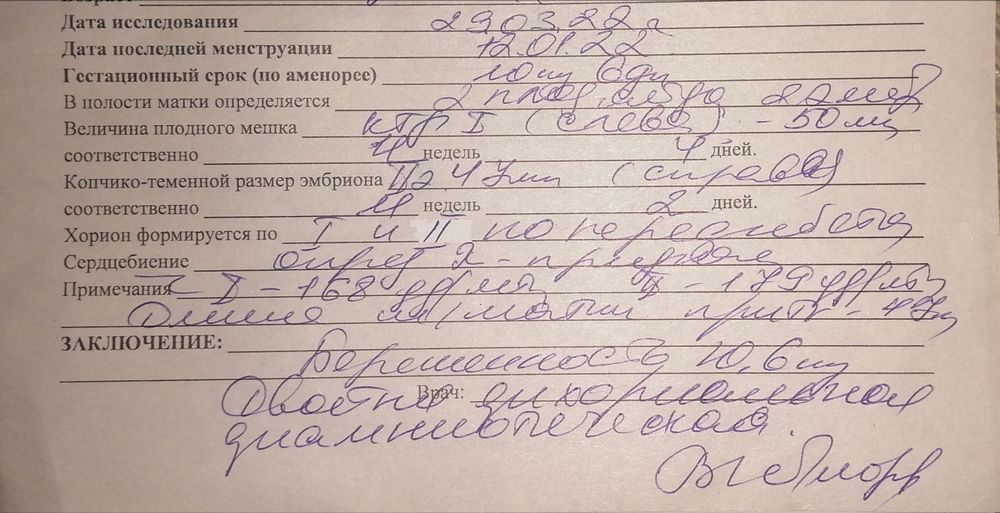 Дата исследования 29.03.22 г
Дата последней менструации 12.01.22
Гестационный срок (по аменорее) 10 нед 6 дн
В полости матки определяется 2 плод. яйца
Величина плодного мешка КТР I (слева) - 50 мм
соответственно 11 недель 4 дней.
Копчико-теменной размер эмбриона II 47мм (справа)
соответственно 11 недель 2 дней.
Хорион формируется по I и II по
Сердцебиение опред 2-
Примечания I - 168 уд/мин II - 179 уд/мин
Длина ш/матки
ЗАКЛЮЧЕНИЕ:
Беременность 10,6 нед
Врач:
Двойня дихориальная
диамниотическая.